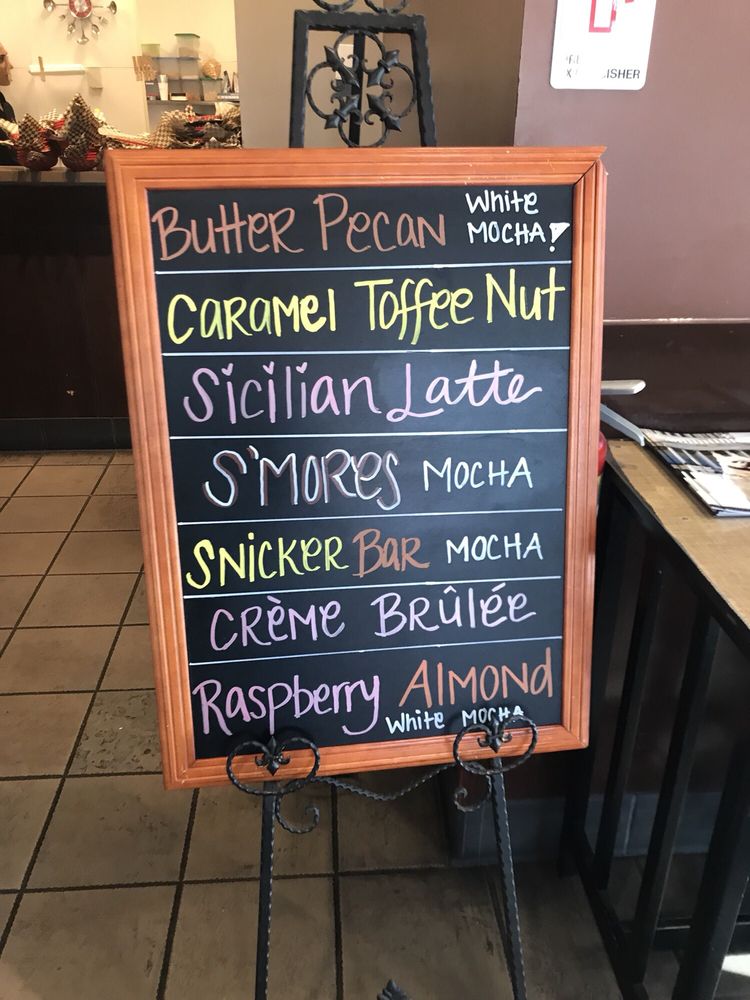 Butter Pecan White
MOCHA!
Caramel Toffee Nut
Sicilian Latte
S'MORES MOCHA
SNICKER Bar MOCHA
CRÈME BRÛLÉE
Raspberry Almond
White MOCHA